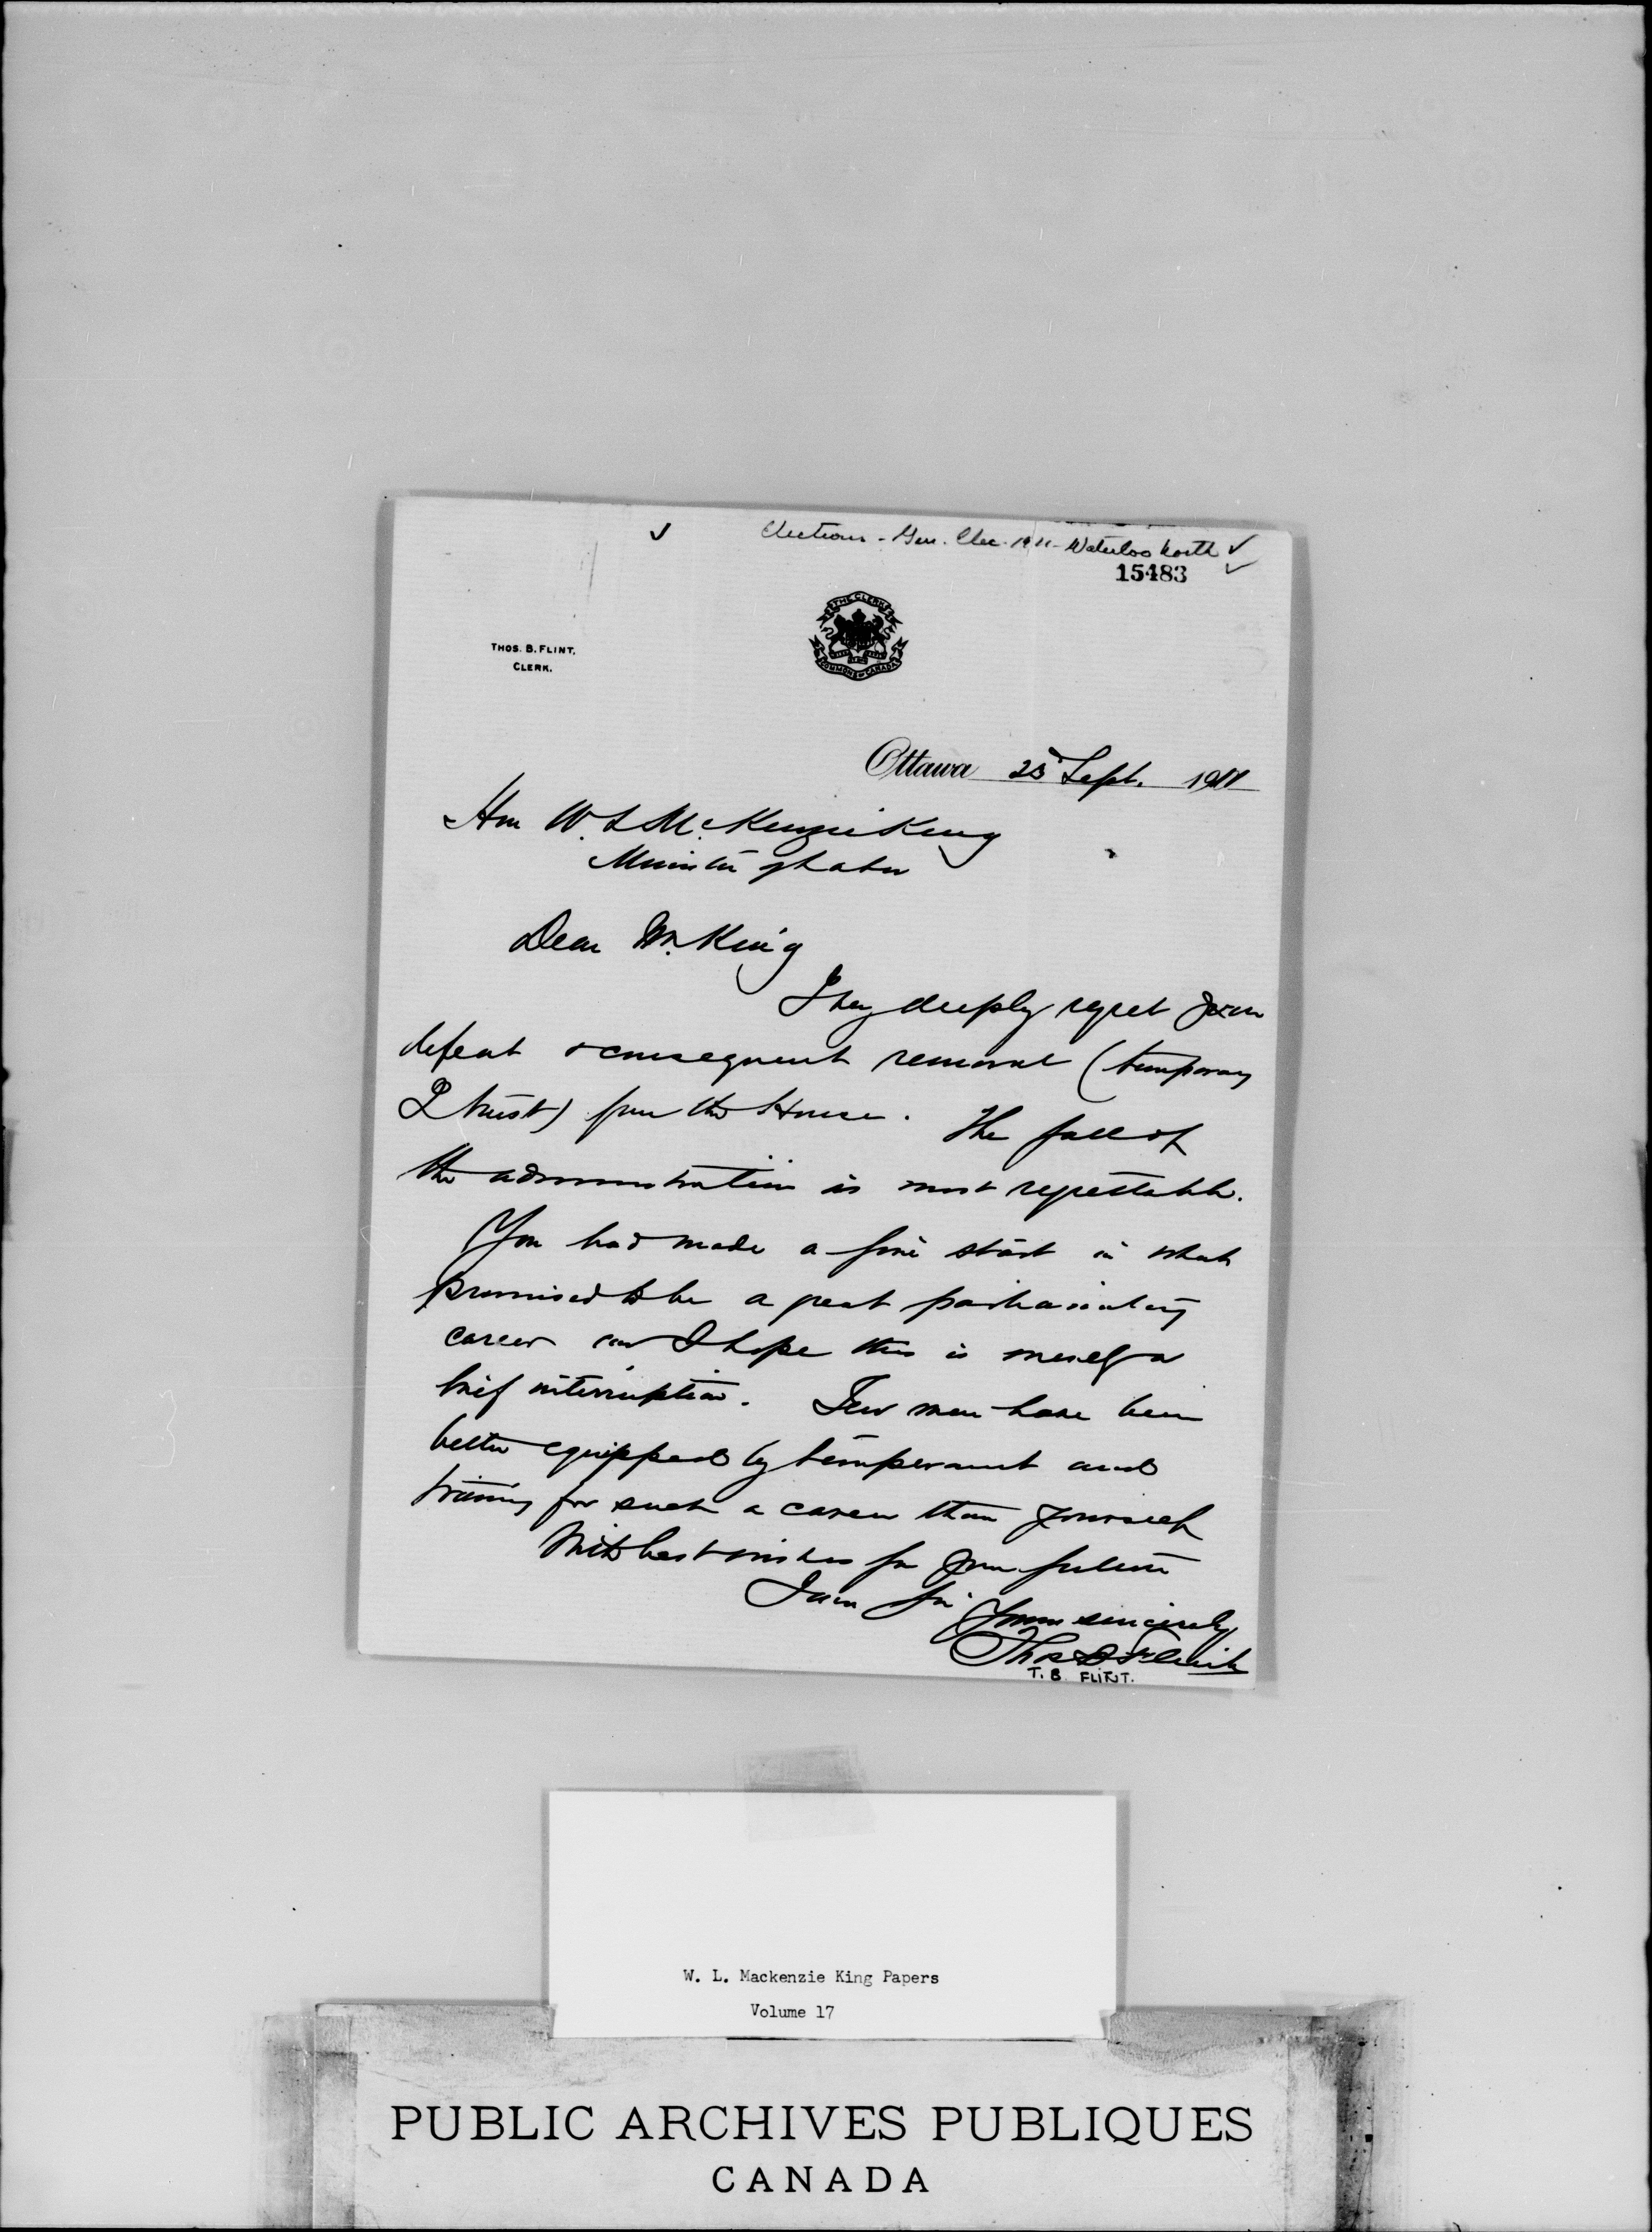 ✓ Elections - Gen. Elec. 1911 - Waterloo North ✓
15483 ✓
THE CLERK
COMMONS OF CANADA
THOS. B. FLINT,
CLERK.
Ottawa 25 Sept. 1911
Hon W. L. McKenzie King
Minister of Labor
Dear Mr. King
I very deeply regret your
defeat & consequent removal (temporary
I trust) from the House. The fall of
the administration is most regrettable.
You had made a fine start in what
promised to be a great parliamentary
career and I hope this is merely a
brief interruption. Few men have been
better equipped by temperament and
training for such a career than yourself
With best wishes for your future
I am Sir
Yours sincerely
Thos B Flint
T. B. FLINT.
W. L. Mackenzie King Papers
Volume 17
PUBLIC ARCHIVES PUBLIQUES
CANADA